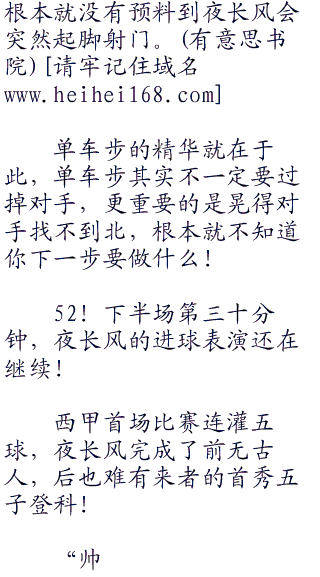 根本就没有预料到夜长风会
突然起脚射门。(有意思书
院)[请牢记住域名
www.heihei168.com]
单车步的精华就在于
此，单车步其实不一定要过
掉对手，更重要的是晃得对
手找不到北，根本就不知道
你下一步要做什么！
52！下半场第三十分
钟，夜长风的进球表演还在
继续！
西甲首场比赛连灌五
球，夜长风完成了前无古
人，后也难有来者的首秀五
子登科！
“帅